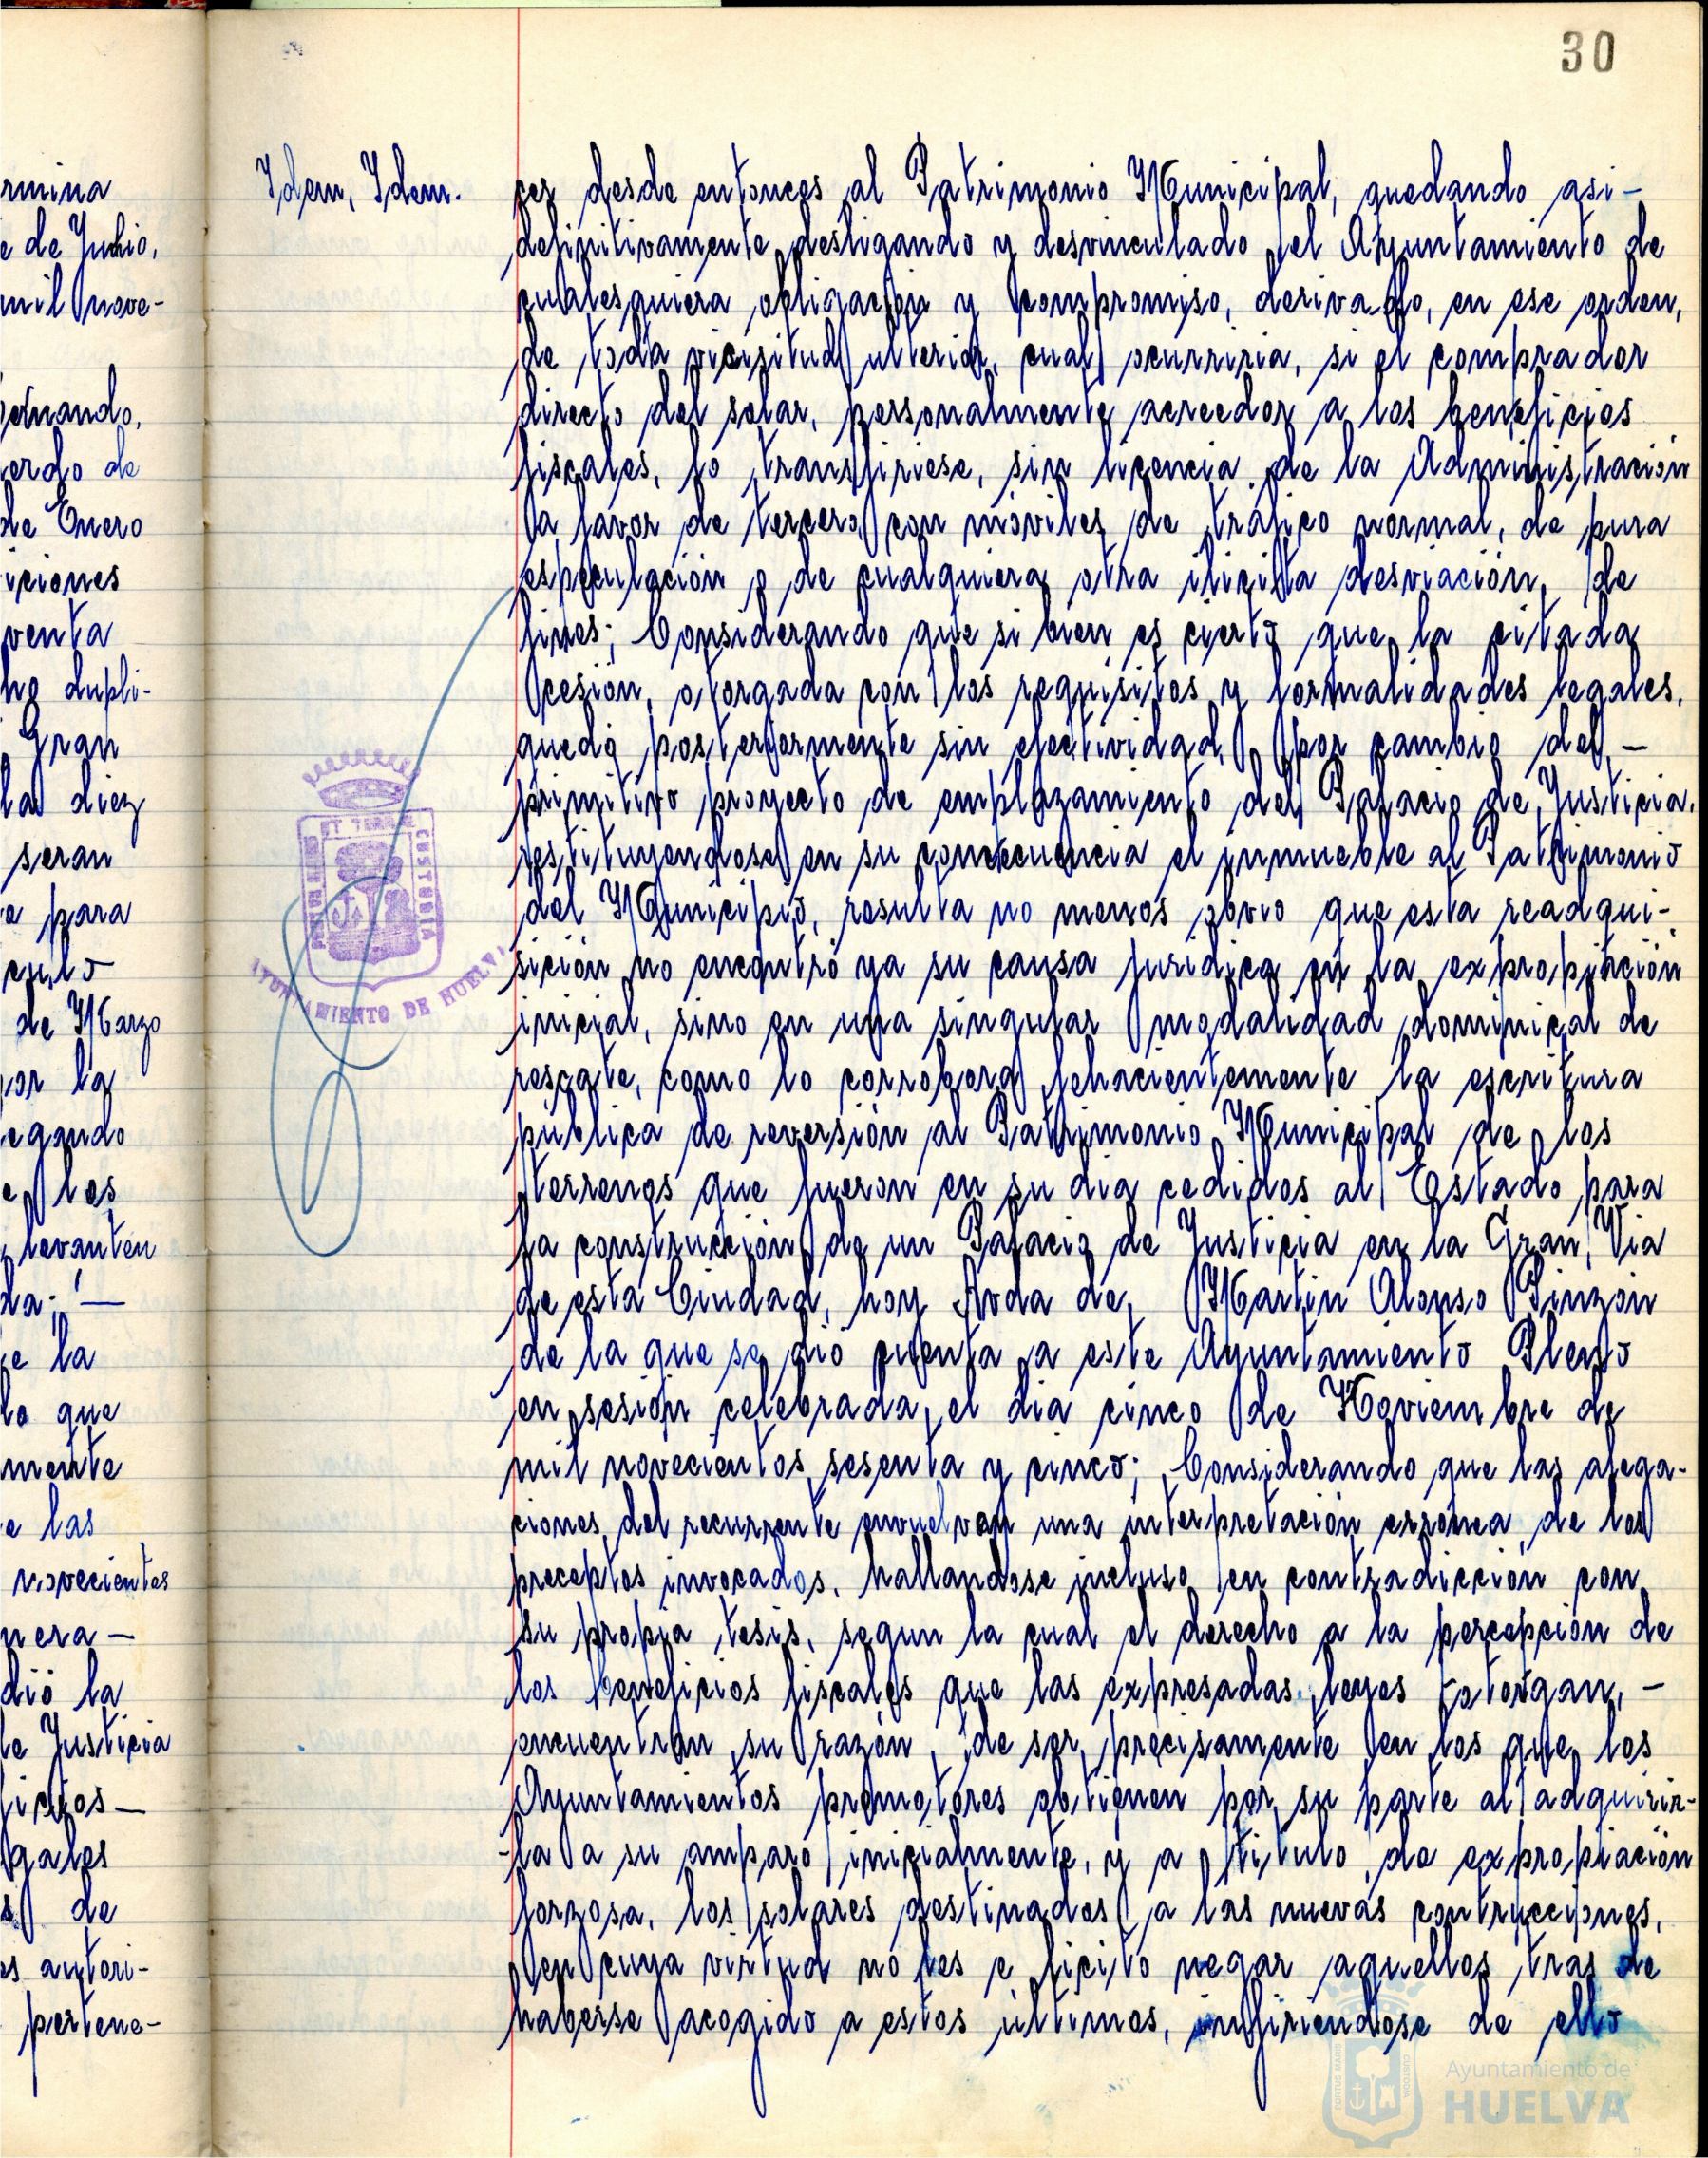 30
Idem, Idem.
cer desde entonces al Patrimonio Municipal, quedando asi-
definitivamente desligando y desvinculado el Ayuntamiento de
cualesquiera obligación y compromiso, derivado, en ese orden,
de toda vicisitud ulterior, cual ocurriria, si el comprador
directo del solar, personalmente acreedor a los beneficios
fiscales, lo transfiriese, sin licencia de la Administración
a favor de tercero, con móviles de tráfico normal, de pura
especulación o de cualquiera otra ilicita desviación, de
fines; Considerando que si bien es cierto que la citada
cesión, otorgada con los requisitos y formalidades legales,
quedó posteriormente sin efectividad, por cambio del -
primitivo proyecto de emplazamiento del Palacio de Justicia,
restituyendose en su consecuencia el inmueble al Patrimonio
del Municipio, resulta no menos obvio que esta readqui-
sición no encontró ya su causa juridica en la expropiación
inicial, sino en una singular modalidad dominical de
rescate, como lo corrobora fehacientemente la escritura
pública de reversión al Patrimonio Municipal de los
terrenos que fueron en su dia cedidos al Estado para
la construcción de un Palacio de Justicia en la Gran Via
de esta Ciudad, hoy Avda de Martin Alonso Pinzón
de la que se dió cuenta a este Ayuntamiento Pleno
en sesión celebrada, el dia cinco de Noviembre de
mil novecientos sesenta y cinco; Considerando que las alega-
ciones del recurrente envuelvan una interpretación erronea de los
preceptos invocados, hallandose incluso en contradicción con
su propia tesis, segun la cual el derecho a la percepción de
los beneficios fiscales que las expresadas leyes otorgan, -
encuentran su razón de ser, precisamente en los que los
Ayuntamientos promotores obtienen por su parte al adquirir-
-la a su amparo inicialmente, y a titulo de expropiación
forzosa, los solares destinados a las nuevas contrucciones,
en cuya virtud no les e licito negar aquellos tras de
haberse acogido a estos ultimos, infiriendose de ello
rmina
e de Junio,
mil nove-
ernando,
erdo de
de Enero
iciones
venta
ho dupli-
Gran
la diez
seran
e para
culo
de Marzo
por la
egando
e los
levanten
da; -
e la
lo que
mente
e las
novecientos
nera -
dió la
de Justicia
ficios -
gales
s de
es autori-
pertene-
PORTUS MARIS ET TERRAE CUSTODIA
AYUNTAMIENTO DE HUELVA
Ayuntamiento de
HUELVA